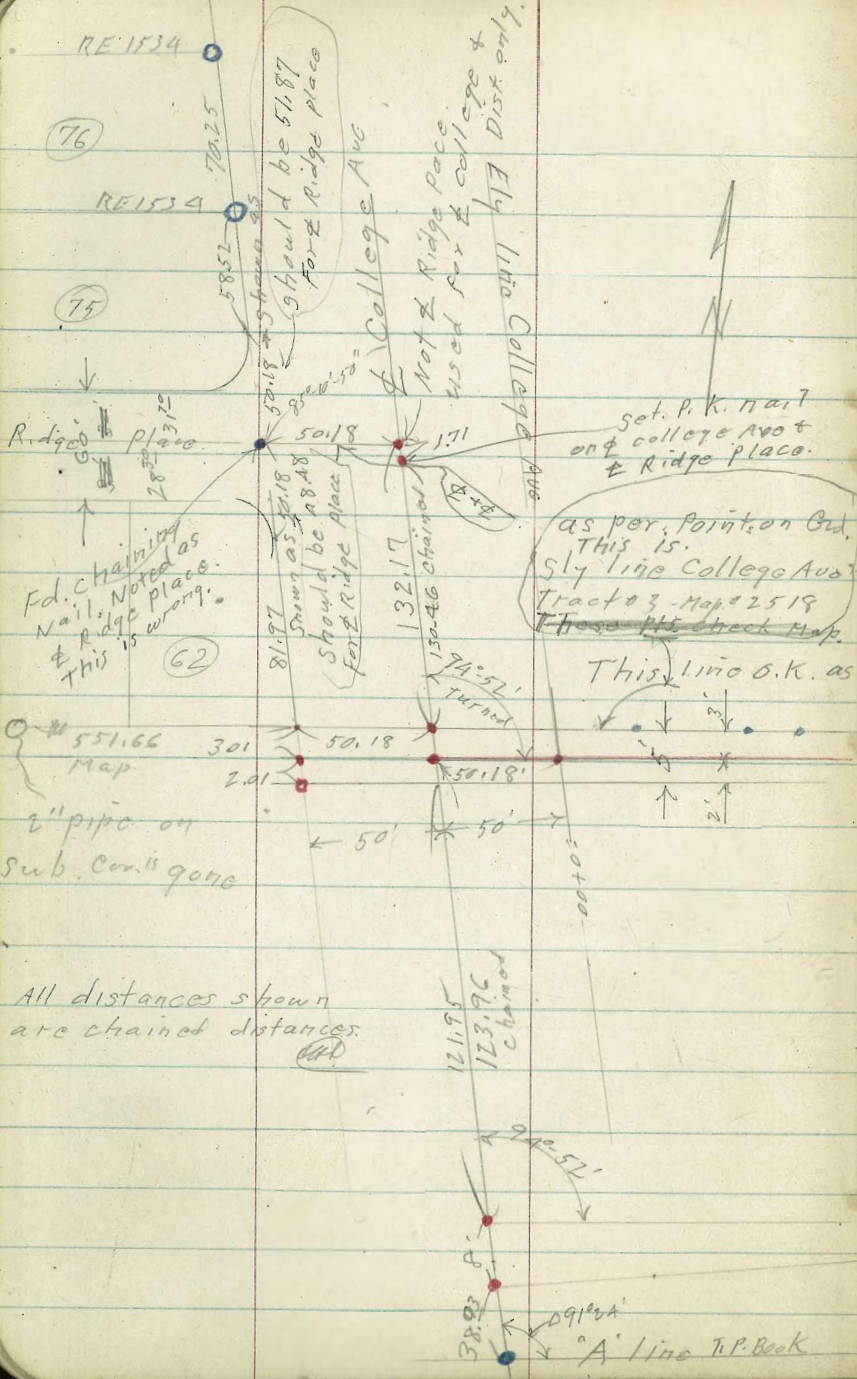 RE 1534
76
70.25
RE 1534
58.52
75
50.18 shown as
should be 51.87
For ℄ Ridge place
85°-10'-50"=
℄ College Ave
Not ℄ Ridge Pace
used for ℄ college &
Ely line College Ave
Dist. only.
N
Ridge Place
60'
28 30
31 70
50.18
1.71
Set. P. K. nail
on ℄ college Ave &
℄ Ridge Place.
Fd. chaining
Nail. Noted as
℄ Ridge place.
This is wrong.
62
81.97
Shown as 50.18
should be 48.48
For ℄ Ridge place
132.17
130.46 chained
74°-52'
turned
as per. Points on Grd.
This is.
Sly line College Ave
Tract #3 - Map #2518
These pts check Map.
This line O.K. as
551.66
Map
3.01
50.18
2.01
50.18'
5'
3'
2'
2" pipe on
Sub. Cor. is gone
50'
50'
=0+00
All distances shown
are chained distances.
121.95
123.96
chained
74°-52'
8'
38.93
91°24'
"A" line T.P. Book